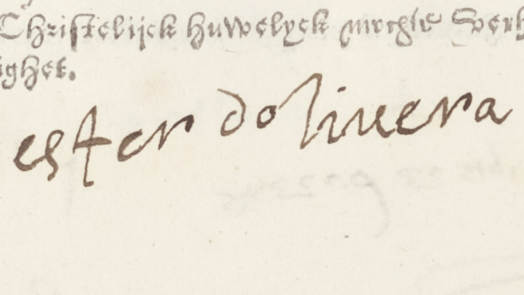 Christelijck huwelyck mochte
ghet.
ester dolivera